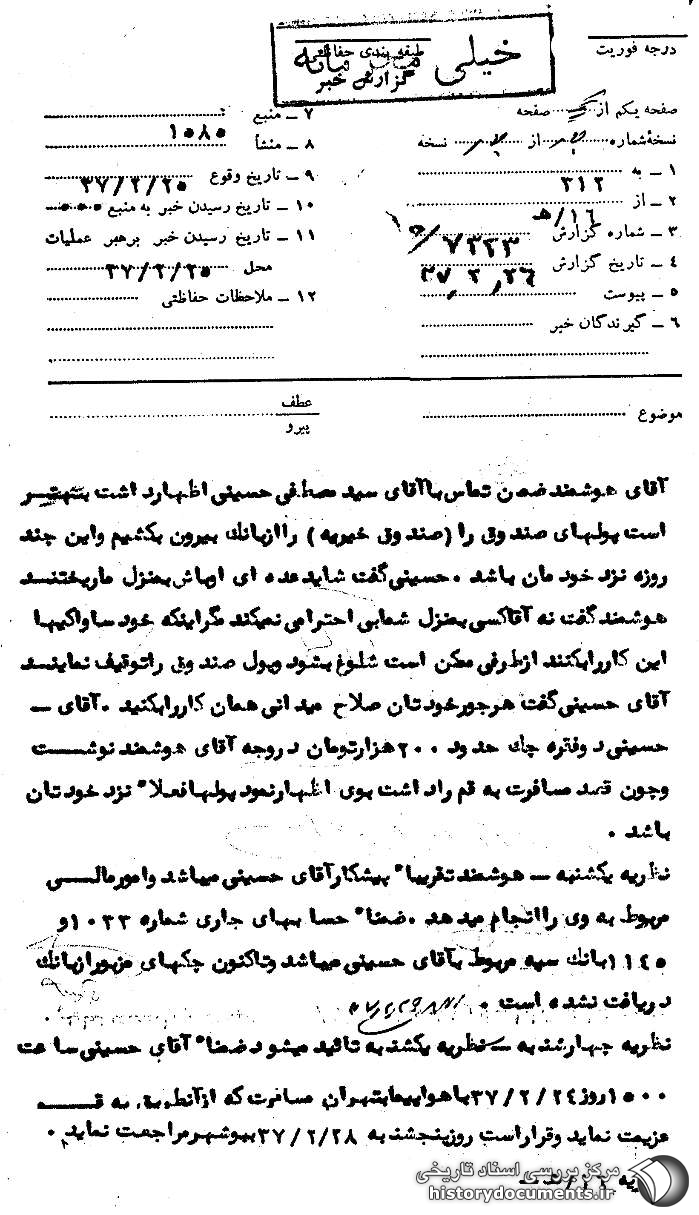 درجه فوریت
خیلی محرمانه
طبقه بندی حفاظتی
گزارش خبر
صفحه یکم از صفحه
نسخهٔ شماره از نسخه
۱ ــ به
۲ ــ از ۳۱۲
۳ ــ شماره گزارش ۷۳۳۳ / ۱۶/ه
۴ ــ تاریخ گزارش ۳۷/۲/۲۶
۵ ــ پیوست
۶ ــ گیرندگان خبر
۷ ــ منبع
۸ ــ منشأ ۱۰۸۵
۹ ــ تاریخ وقوع ۳۷/۲/۲۵
۱۰ ــ تاریخ رسیدن خبر به منبع
۱۱ ــ تاریخ رسیدن خبر برهبر عملیات
محل ۳۷/۲/۲۵
۱۲ ــ ملاحظات حفاظتی
موضوع
عطف
پیرو
آقای هوشمند ضمن تماس باآقای سید مصطفی حسینی اظهارد اشت بهتر
است پولهای صندوق را (صندوق خیریه) راازبانك بیرون بکشیم واین چند
روزه نزد خودمان باشد .حسینی گفت شاید عده ای اوباش بمنزل ماریختند
هوشمند گفت نه آقاکسی بمنزل شمابی احترامی نمیکند مگراینکه خود ساواکیها
این کاررابکنند ازطرفی ممکن است شلوغ بشود وپول صندوق راتوقیف نمایند
آقای حسینی گفت هرجورخودتان صلاح میدانی همان کاررابکنید .آقای ــ
حسینی دوفقره چك حدود ۲۰۰هزارتومان دروجه آقای هوشمند نوشت
وچون قصد مسافرت به قم راداشت بوی اظهارنمود پولهافعلا" نزد خودتان
باشد .
نظریه یکشنبه ــ هوشمند تقریبا" پیشکارآقای حسینی میباشد وامورمالی
مربوط به وی راانجام میدهد .ضمنا" حسابهای جاری شماره ۱۰۳۳و
۱۱۴۵بانك سپه مربوط بآقای حسینی میباشد وتاکنون چکهای مزبورازبانك
دریافت نشده است .
نظریه چهارشنبه ــ نظریه یکشنبه تائید میشود ضمنا" آقای حسینی ساعت
۱۵۰۰روز ۳۷/۲/۲۴باهواپیمابتهران مسافرت که ازآنطریق به قم
عزیمت نماید وقراراست روزپنجشنبه ۳۷/۲/۲۸ببوشهرمراجعت نماید .
مرکز بررسی اسناد تاریخی
historydocuments.ir